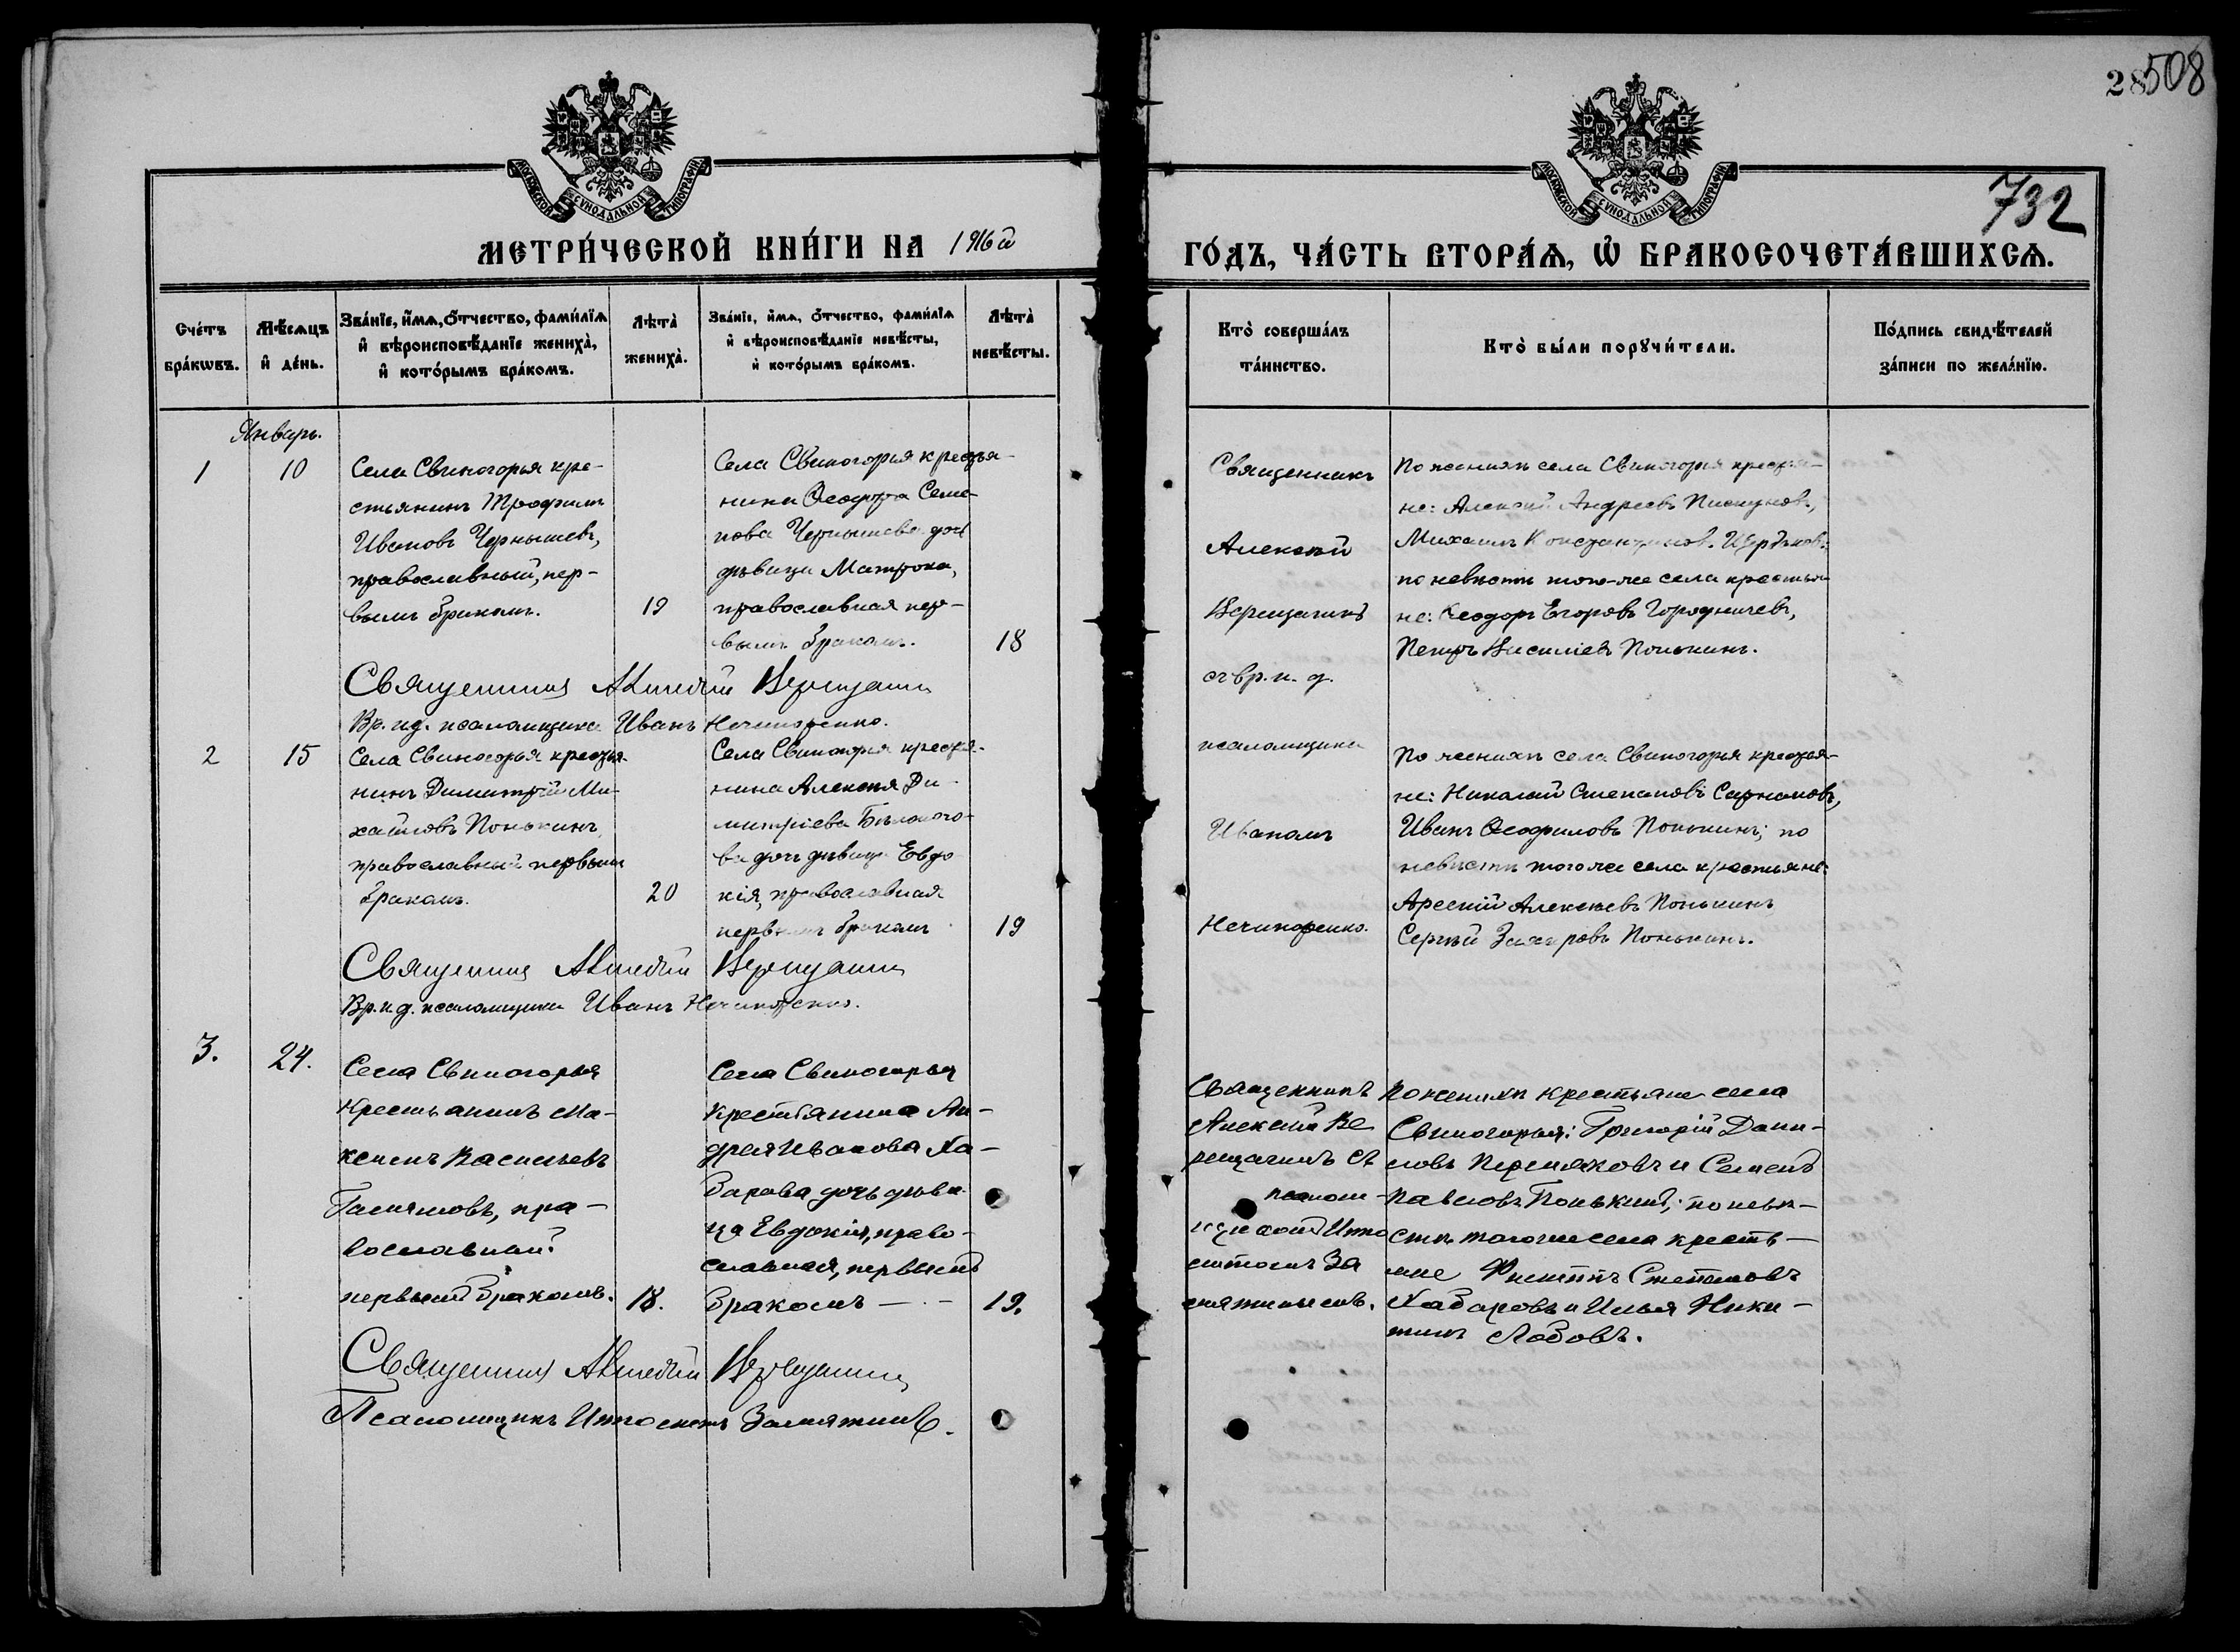 28 508
732
МОСКОВСКОЙ СѴНОДАЛЬНОЙ ТИПОГРАФІИ
МОСКОВСКОЙ СѴНОДАЛЬНОЙ ТИПОГРАФІИ
МЕТРИ́ЧЕСКОЙ КНИ́ГИ НА 1916й
ГО́ДЪ, ЧА́СТЬ ВТОРА́Ѧ, Ѽ БРАКОСОЧЕТА́ВШИХСѦ.
Сче́тъ бра́кѡвъ.
Мѣ́сѧцъ и҆ де́нь.
Зва́нїе, и҆́мѧ, ѻ҆́тчество, фами́лїѧ и҆ вѣроисповѣ́данїе жениха̀, и҆ кото́рымъ бра́комъ.
Лѣта̀ жениха̀.
Зва́нїе, и҆́мѧ, ѻ҆́тчество, фами́лїѧ и҆ вѣроисповѣ́данїе невѣ́сты, и҆ кото́рымъ бра́комъ.
Лѣта̀ невѣ́сты.
Кто̀ соверша́лъ та́инство.
Кто̀ бы́ли порꙋчи́тели.
По́дпись свидѣ́телей за́писи по жела́нїю.
Январь.
1
10
Села Свиногорья кре-
стьянинъ Трофимъ
Ивановъ Чернышевъ,
православный, пер-
вымъ бракомъ.
19
Села Свиногорья крестья-
нина Ѳеодора Семе-
нова Чернышева дочь
дѣвица Матрона,
православная пер-
вымъ бракомъ.
18
Священникъ
Алексѣй
Верещагинъ
съ вр. и. д.
псаломщика
Иваномъ
Нечипоренко.
По женихѣ села Свиногорья крестья-
не: Алексѣй Андреевъ Пискуновъ,
Михаилъ Константиновъ
по невѣстѣ того-же села крестья-
не: Ѳеодоръ Егоровъ Городничевъ,
Петръ Василіевъ Понькинъ.
Священникъ Алексѣй Верещагинъ
Вр. и д. псаломщика Иванъ Нечипоренко.
2
15
Села Свиногорья крестья-
нинъ Димитрій Ми-
хайловъ Понькинъ,
православный первымъ
бракомъ.
20
Села Свиногорья крестья-
нина Алексѣя Ди-
митріева
дочь дѣвица Евдо-
кія, православная
первымъ бракомъ
19
По женихѣ села Свиногорья крестья-
не: Николай Степановъ
Иванъ Ѳеофиловъ Понькинъ; по
невѣстѣ того же села крестьяне:
Арсеній Алексѣевъ Понькинъ
Сергѣй Захаровъ Понькинъ.
Священникъ Алексѣй Верещагинъ
Вр. и. д. псаломщика Иванъ Нечипоренко.
3.
24.
Села Свиногорья
Крестьянинъ Ма-
ксимъ Васильевъ
пра-
вославный
первымъ бракомъ.
18.
Села Свиногорья
крестьянина Ан-
дрея Иванова Ха-
барова дочь дѣви-
ца Евдокія, право-
славная, первымъ
бракомъ —
19.
Священникъ
Алексѣй Ве
рещагинъ съ
псалом-
щикомъ Иппо
литомъ За
мятинымъ.
По женихѣ крестьяне села
Свиногорья: Григорій Дани-
ловъ и Семенъ
Павловъ Понькинъ; по невѣ-
стѣ того же села кресть-
яне Филиппъ Степановъ
Хабаровъ и Илья Ники-
тинъ Лобовъ.
Священникъ Алексѣй Верещагинъ
Псаломщикъ Ипполитъ Замятинъ.